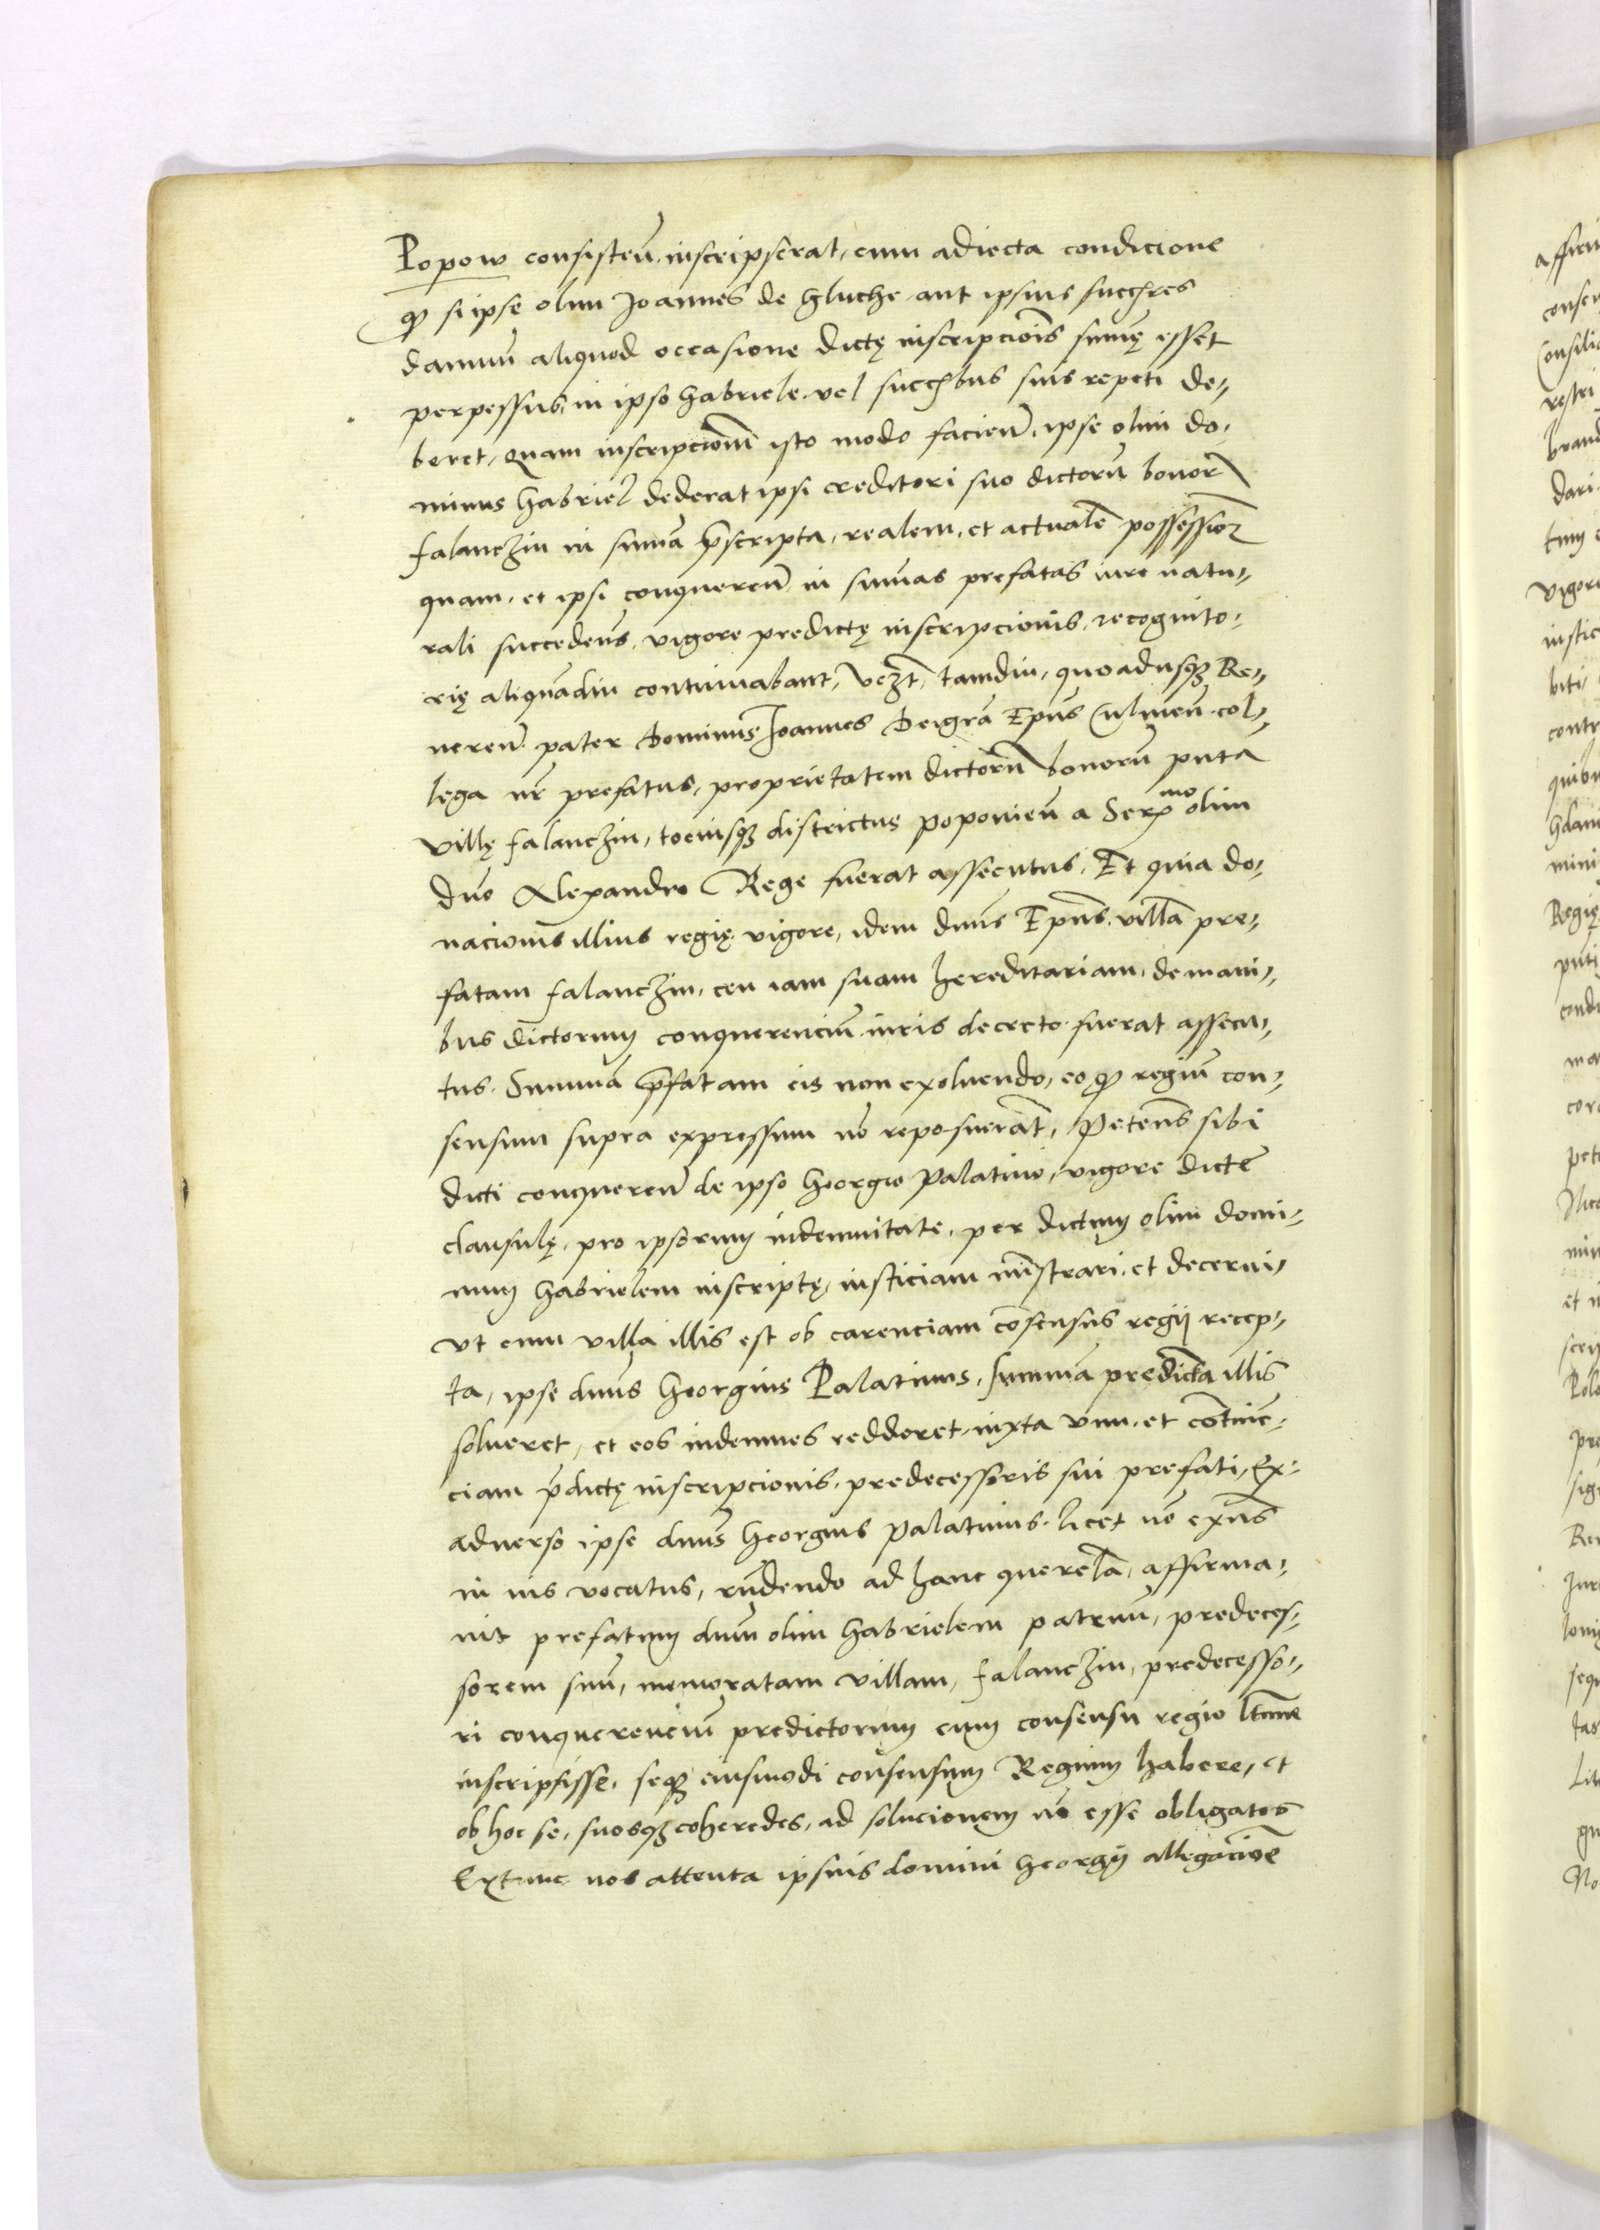 Popow consisteñ. inscripserat, cum adiecta condicione
qp si ipse olim Joannes de Gluche aut ipsius succẽres
damnũ aliquod occasione dictę inscripciõis sum̃ę esset
perpessus, in ipso Gabriele vel succẽbus suis repeti de-
beret, quam inscripcionẽ isto modo facieñ. ipse olim do-
minus Gabriel dederat ipsi creditori suo dictorũ bonorũ
Falanczin in sum̃ã p̃scripta, realem, et actualẽ possessionẽ
quam, et ipsi conquereñ in sum̃as prefatas iure natu-
rali succedeñs, vigore predictę inscripcionis, recognito-
rię aliquãdiu continuabant, Vcz̃t, tamdiu, quoadusqз Re-
uereñ. pater Dominus Joannes Dei grã Epũs Culmeñ. col-
lega nr̃ prefatus, proprietatem dictorũ bonorũ puta
villę Falanczin, tociusqз districtus popouieñ a Serᵐᵒ olim
dño Alexandro Rege fuerat assecutus. Et quia do-
nacionis illius regię. vigore, idem dñus Epũs. villã pre-
fatam Falanczin, ceu iam suam hereditariam, de mani-
bus dictorum conquerenciũ iuris decreto fuerat assecu-
tus. Sum̃ã p̃fatam eis non exoluendo, eo qp regiũ con-
sensum supra expressum nõ reposuerãt, Petẽns sibi
dicti conquereñ de ipso Georgio Palatino, vigore dictę
clausulę, pro ipsorum indemnitate, per dictum olim domi-
num Gabrielem inscriptę, iusticiam mĩstrari, et decerni
vt cum villa illis est ob carenciam cõsensus regij recep-
ta, ipse dñus Georgius Palatinus, summã predictã illis
solueret, et eos indemnes redderet, iuxta vim, et cõtinẽ-
ciam p̃dictę inscripcionis. predecessoris sui prefati, Ex
aduerso ipse dñus Georgius Palatinus. licet nõ exñs
in ius vocatus, rñdendo ad hanc querelã, affirma-
uit prefatum dñm olim Gabrielem patruũ, predeces-
sorem suũ, memoratam villam, Falanczin, predecesso-
ri conquerenciũ predictorum cum consensu regio ltime
inscripsisse, seqз eiusmodi consensum Regium habere, et
ob hoc se, suosqз coheredes, ad solucionem nõ esse obligatos
Ex tunc nos attenta ipsius domini Georgij allegaciõe